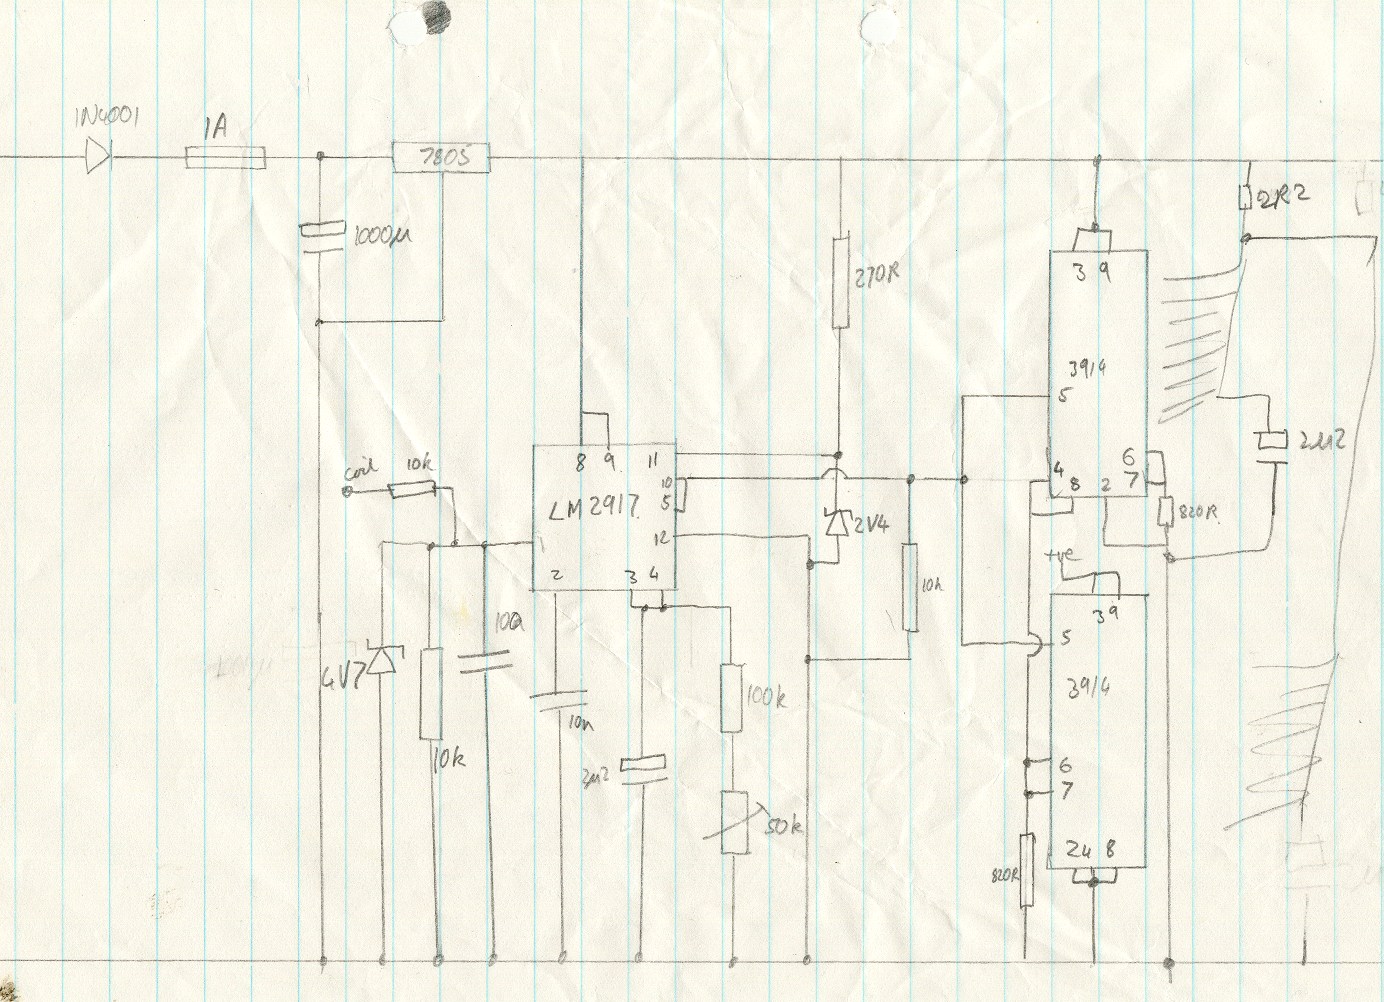 1N4001
1A
7805
1000µ
2R2
270R
3 9
3914
5
4
8
2
6
7
820R
2µ2
coil
10k
8 9 11
10
5
LM2917
12
2 3 4
2V4
10k
+ve
3 9
5
3914
6
7
24 8
820R
4V7
10k
10n
2µ2
100k
50k